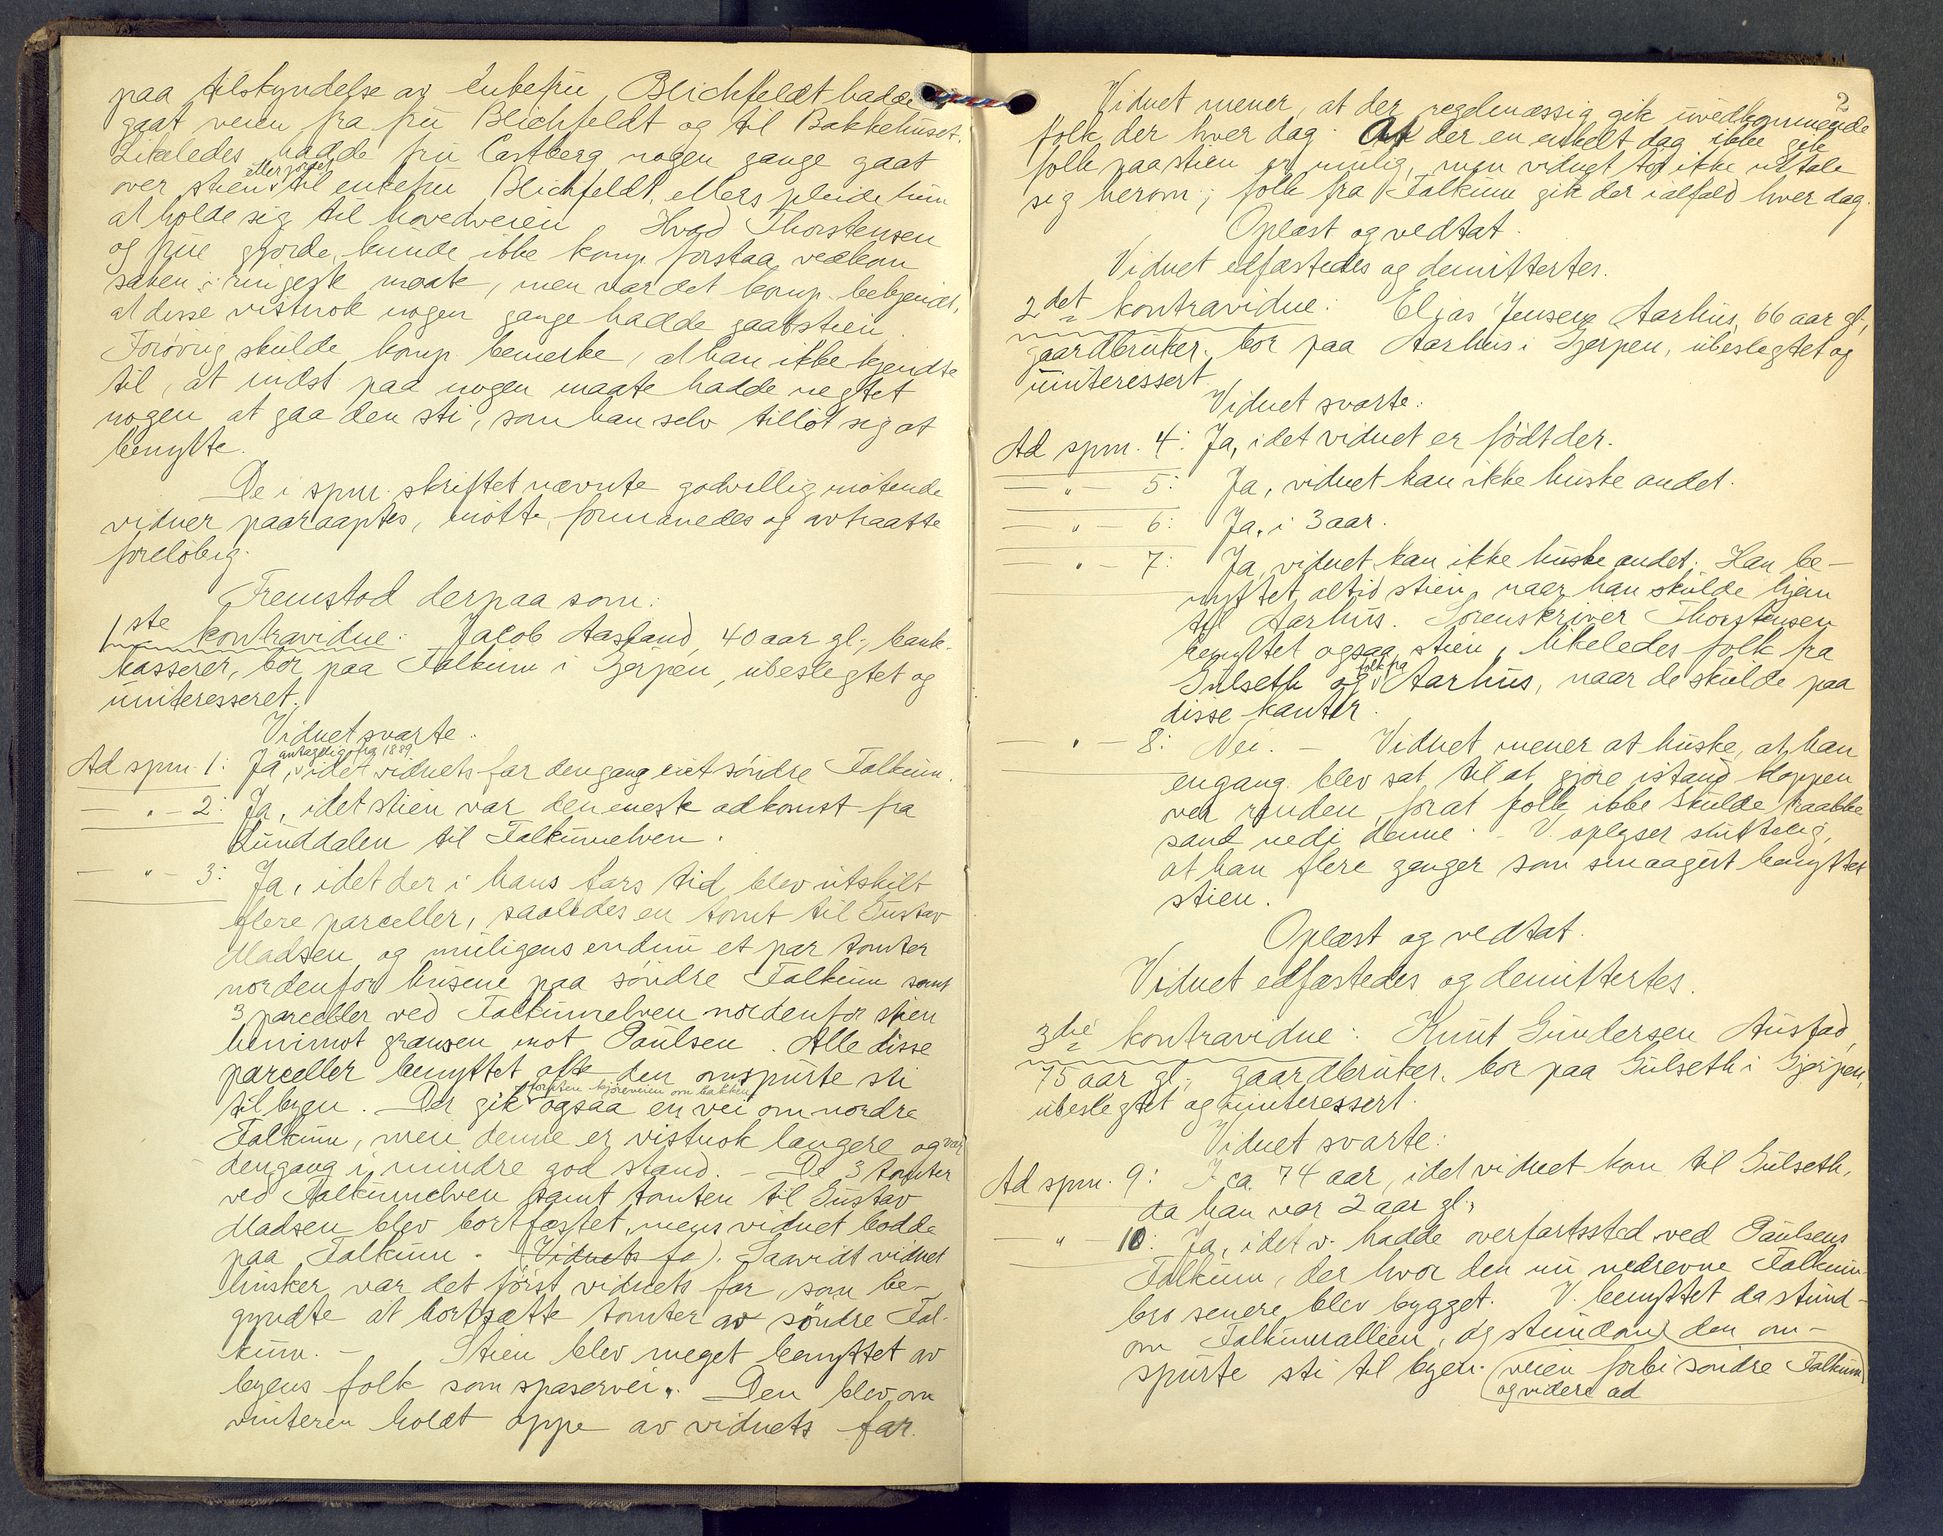 paa tilskyndelse av enkefru Blichfeldt hadde
gaat veien fra fru Blichfeldt og til Bakkehuset.
Likeledes hadde fru Castberg nogen gange gaat
over stien til enkefru Blichfeldt, ellers pleide hun
at holde sig til hovedveien. Hvad Thorstensen
og frue gjorde, kunde ikke komp. forstaa vedkom
saken i ringeste maate, men var det komp. bekjendt,
at disse vistnok nogen gange hadde gaat stien.
Forøvrig skulde komp. bemerke, at han ikke kjendte
til, at indst. paa nogen maate hadde negtet
nogen at gaa den sti, som han selv tillot sig at
benytte.
De i spm. skriftet nævnte godvillig møtende
vidner paaraaptes, møtte, formanedes og avtraatte
foreløbig.
Fremstod derpaa som:
1ste kontravidne: Jacob Aasland, 40 aar gl., bank-
kasserer, bor paa Falkum i Gjerpen, ubeslegtet og
uinteresseret.
Vidnet svarte:
antagelig fra 1889
Ad spm. 1: Ja, idet vidnets far dengang eiet søndre Falkum.
— " — 2: Ja, idet stien var den eneste adkomst fra
Lunddalen til Falkumelven.
— " — 3: Ja, idet der i hans fars tid blev utskilt
flere parceller, saaledes en tomt til Gustav
Madsen og muligens endnu et par tomter
nordenfor husene paa søndre Falkum samt
3 parceller ved Falkumelven nordenfor stien
henimot grænsen mot Paulsen. Alle disse
parceller benyttet ofte den omspurte sti
foruten kjøreveien om bakken
til byen. Der gik ogsaa en vei om nordre
Falkum, men denne er vistnok længere og var
dengang i mindre god stand. De 3 tomter
ved Falkumelven samt tomten til Gustav
Madsen blev bortfæstet, mens vidnet bodde
paa Falkum. (Vidnets fa). Saavidt vidnet
husker var det først vidnets far, som be-
gyndte at bortsætte tomter av søndre Fal-
kum. — Stien blev meget benyttet av
byens folk som spaservei. Den blev om
vinteren holdt oppe av vidnets far.
2
Vidnet mener, at der regelmæssig gik uvedkommende
folk der hver dag. At der en enkelt dag ikke gik
folk paa stien er mulig, men vidnet tør ikke uttale
sig herom; folk fra Falkum gik der ialfald hver dag.
Oplæst og vedtat.
Vidnet edfæstedes og demittertes.
2det kontravidne: Eljas Jensen Aarhus, 66 aar gl.,
gaardbruker, bor paa Aarhus i Gjerpen, ubeslegtet og
uinteressert.
Vidnet svarte:
Ad spm. 4: Ja, idet vidnet er født der.
— " — 5: Ja, vidnet kan ikke huske andet.
— " — 6: Ja, i 3 aar.
— " — 7: Ja, vidnet kan ikke huske andet. Han be-
nyttet altid stien, naar han skulde hjem
til Aarhus. Sorenskriver Thorstensen
benyttet ogsaa stien, likeledes folk fra
Gulseth og folk fra Aarhus, naar de skulde paa
disse kanter.
— " — 8: Nei. — Vidnet mener at huske, at han
engang blev sat til at gjøre istand kloppen
ved renden, forat folk ikke skulde traakke
sand nedi denne. — V. oplyser sluttelig,
at han flere ganger som smaagut benyttet
stien.
Oplæst og vedtat.
Vidnet edfæstedes og demittertes.
3die kontravidne: Knut Gundersen Austad,
75 aar gl., gaardbruker, bor paa Gulseth i Gjerpen,
ubeslegtet og uinteressert.
Vidnet svarte:
Ad spm. 9: I ca. 74 aar, idet vidnet kom til Gulseth,
da han var 2 aar gl.,
— " — 10: Ja, idet v. hadde overfartssted ved Paulsens
Falkum, der hvor den nu nedrevne Falkum-
bro senere blev bygget. V. benyttet da stund-
om Falkumalleen, og stundom den om-
spurte sti til byen. (veien forbi søndre Falkum
og videre ad